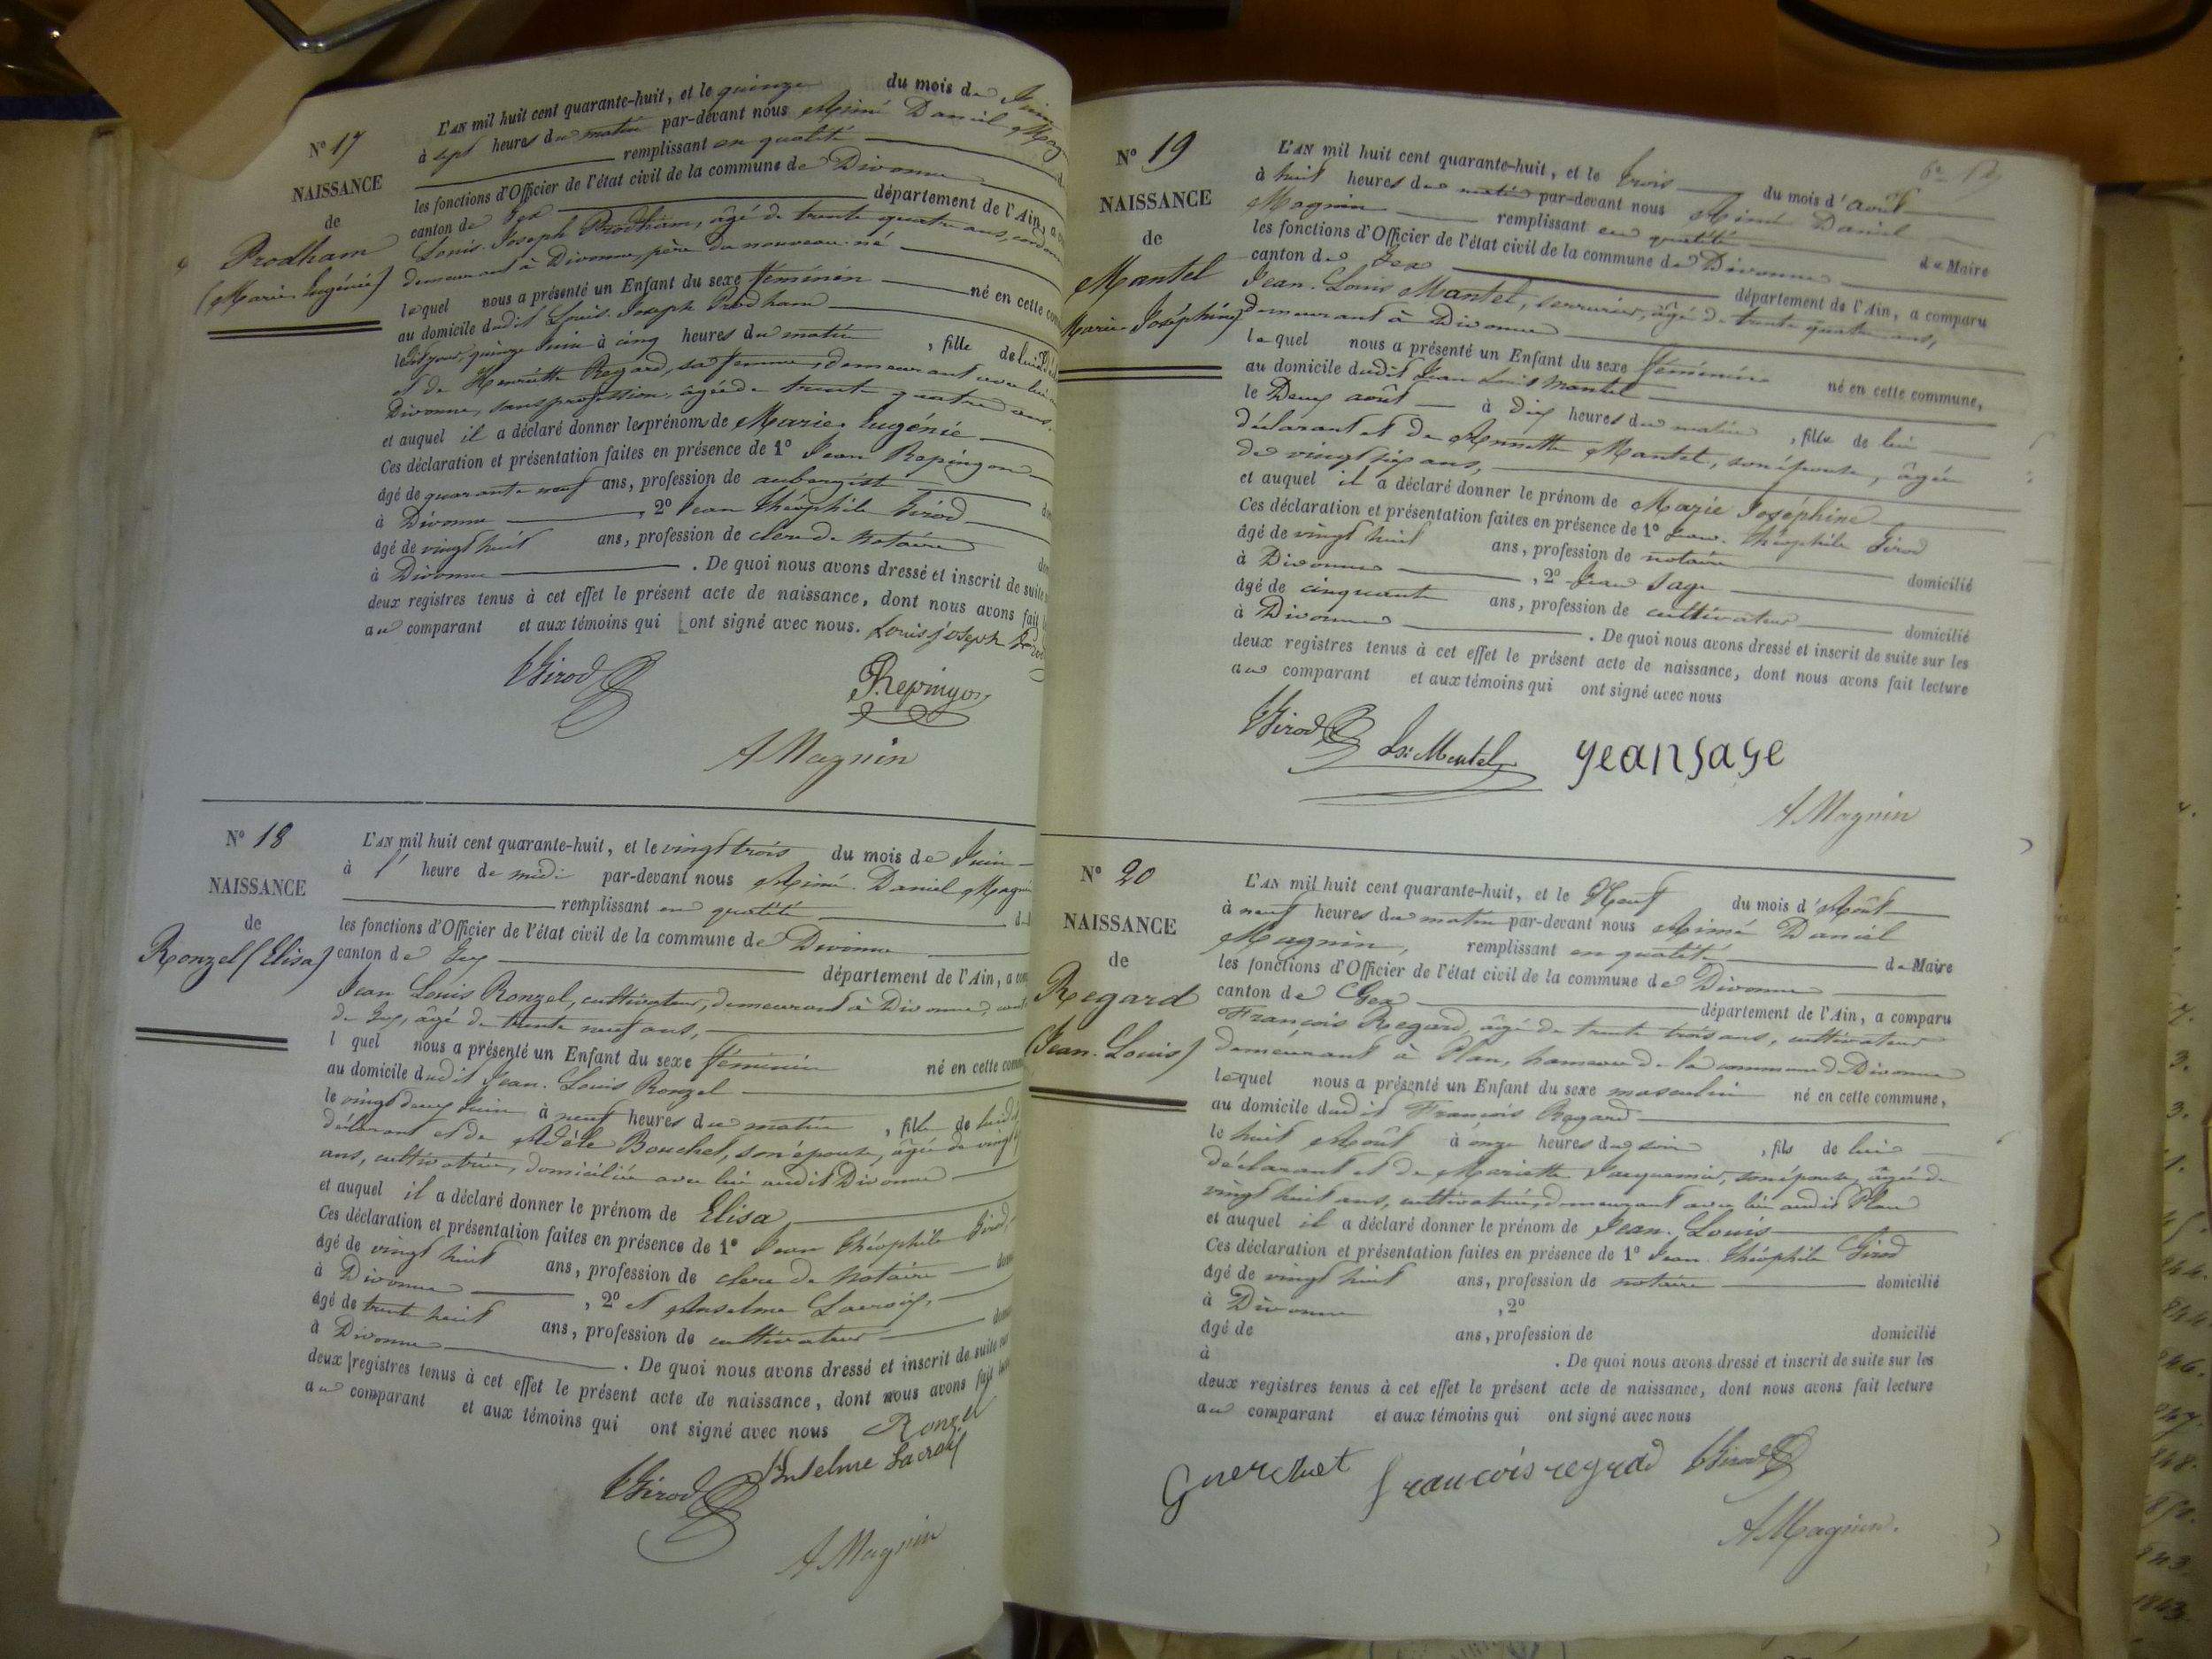 N° 17
NAISSANCE
de
Prodham
(Marie Eugénie)
L'AN mil huit cent quarante-huit, et le quinze du mois de Juin
à sept heures du matin par-devant nous Aimé Daniel Mag
remplissant en qualité
les fonctions d'Officier de l'état civil de la commune de Divonne
canton de Gex département de l'Ain, a
Louis Joseph Prodham, âgé de trente quatre ans,
demeurant à Divonne, père du nouveau-né
lequel nous a présenté un Enfant du sexe féminin né en cette com
au domicile dudit Louis Joseph Prodham
le quinze Juin à cinq heures du matin, fille de lui
et de Henriette Regard, sa femme, demeurant avec lui
Divonne, sans profession, âgée de trente quatre ans.
et auquel il a déclaré donner les prénoms de Marie Eugénie
Ces déclaration et présentation faites en présence de 1° Jean Rapingon
âgé de quarante neuf ans, profession de aubergiste
à Divonne, 2° Jean Théophile Girod
âgé de vingt huit ans, profession de clerc de Notaire
à Divonne. De quoi nous avons dressé et inscrit de suite
deux registres tenus à cet effet le présent acte de naissance, dont nous avons fait
au comparant et aux témoins qui ont signé avec nous. Louis joseph
TGirod
A Magnin
N° 18
NAISSANCE
de
Ronzel (Elisa)
L'AN mil huit cent quarante-huit, et le vingt trois du mois de Juin
à l' heure de midi par-devant nous Aimé Daniel Magnin
remplissant en qualité
les fonctions d'Officier de l'état civil de la commune de Divonne
canton de Gex département de l'Ain, a com
Jean Louis Ronzel, cultivateur, demeurant à Divonne,
de Gex, âgé de trente neuf ans,
l quel nous a présenté un Enfant du sexe féminin né en cette com
au domicile dudit Jean Louis Ronzel
le vingt deux Juin à neuf heures du matin, fille de lui
déclarant et de Adèle Bouchet, son épouse, âgée de vingt
ans, cultivatrice, domiciliée avec lui audit Divonne
et auquel il a déclaré donner le prénom de Elisa
Ces déclaration et présentation faites en présence de 1° Jean Théophile Girod,
âgé de vingt huit ans, profession de clerc de Notaire
à Divonne, 2° et Anselme Lacroix,
âgé de trente huit ans, profession de cultivateur
à Divonne. De quoi nous avons dressé et inscrit de suite sur
deux registres tenus à cet effet le présent acte de naissance, dont nous avons fait
au comparant et aux témoins qui ont signé avec nous Ronzel
Anselme Lacroix
TGirod
A Magnin
N° 19
NAISSANCE
de
Mantel
Marie Joséphine)
L'AN mil huit cent quarante-huit, et le trois du mois d'août
à huit heures du matin par-devant nous Aimé Daniel
Magnin remplissant en qualité de Maire
les fonctions d'Officier de l'état civil de la commune de Divonne
canton de Gex département de l'Ain, a comparu
Jean Louis Mantel, serrurier, âgé de trente quatre ans,
demeurant à Divonne
lequel nous a présenté un Enfant du sexe féminin né en cette commune,
au domicile dudit Jean Louis Mantel
le Deux août à dix heures du matin, fille de lui
déclarant et de Annette Mantel, son épouse, âgée
de vingt six ans,
et auquel il a déclaré donner le prénom de Marie Joséphine
Ces déclaration et présentation faites en présence de 1° Jean Théophile Girod
âgé de vingt huit ans, profession de notaire domicilié
à Divonne, 2° Jean Sage
âgé de cinquante ans, profession de cultivateur domicilié
à Divonne. De quoi nous avons dressé et inscrit de suite sur les
deux registres tenus à cet effet le présent acte de naissance, dont nous avons fait lecture
au comparant et aux témoins qui ont signé avec nous
TGirod Ls. Mantel jean sage
A Magnin
N° 20
NAISSANCE
de
Regard
(Jean Louis)
L'AN mil huit cent quarante-huit, et le Neuf du mois d'Août
à neuf heures du matin par-devant nous Aimé Daniel
Magnin, remplissant en qualité de Maire
les fonctions d'Officier de l'état civil de la commune de Divonne
canton de Gex département de l'Ain, a comparu
François Regard, âgé de trente trois ans, cultivateur
demeurant à Plan, hameau de la commune de Divonne
lequel nous a présenté un Enfant du sexe masculin né en cette commune,
au domicile dudit François Regard
le huit Août à onze heures du soir, fils de lui
déclarant et de Mariette Jacquemier, son épouse, âgée de
vingt huit ans, cultivatrice, demeurant avec lui audit Plan
et auquel il a déclaré donner le prénom de Jean Louis
Ces déclaration et présentation faites en présence de 1° Jean Théophile Girod
âgé de vingt huit ans, profession de notaire domicilié
à Divonne, 2°
âgé de ans, profession de domicilié
à . De quoi nous avons dressé et inscrit de suite sur les
deux registres tenus à cet effet le présent acte de naissance, dont nous avons fait lecture
au comparant et aux témoins qui ont signé avec nous
Guerchet françois regard TGirod
A Magnin.